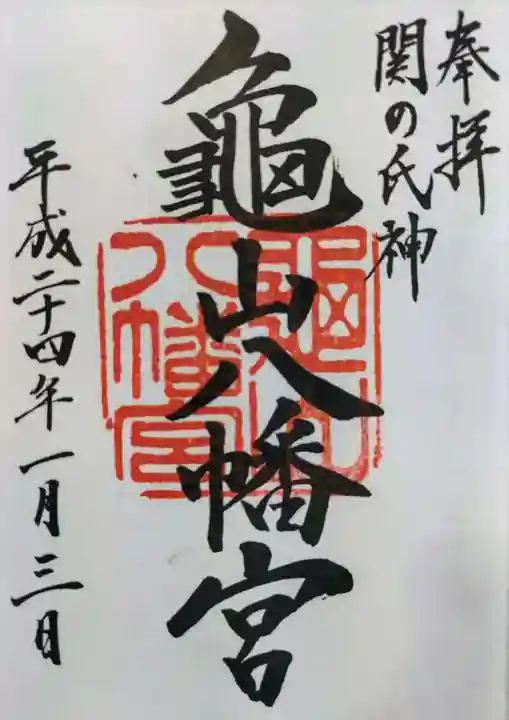 奉拝
関の氏神
龜山八幡宮
平成二十四年一月三日
龜山
八幡宮